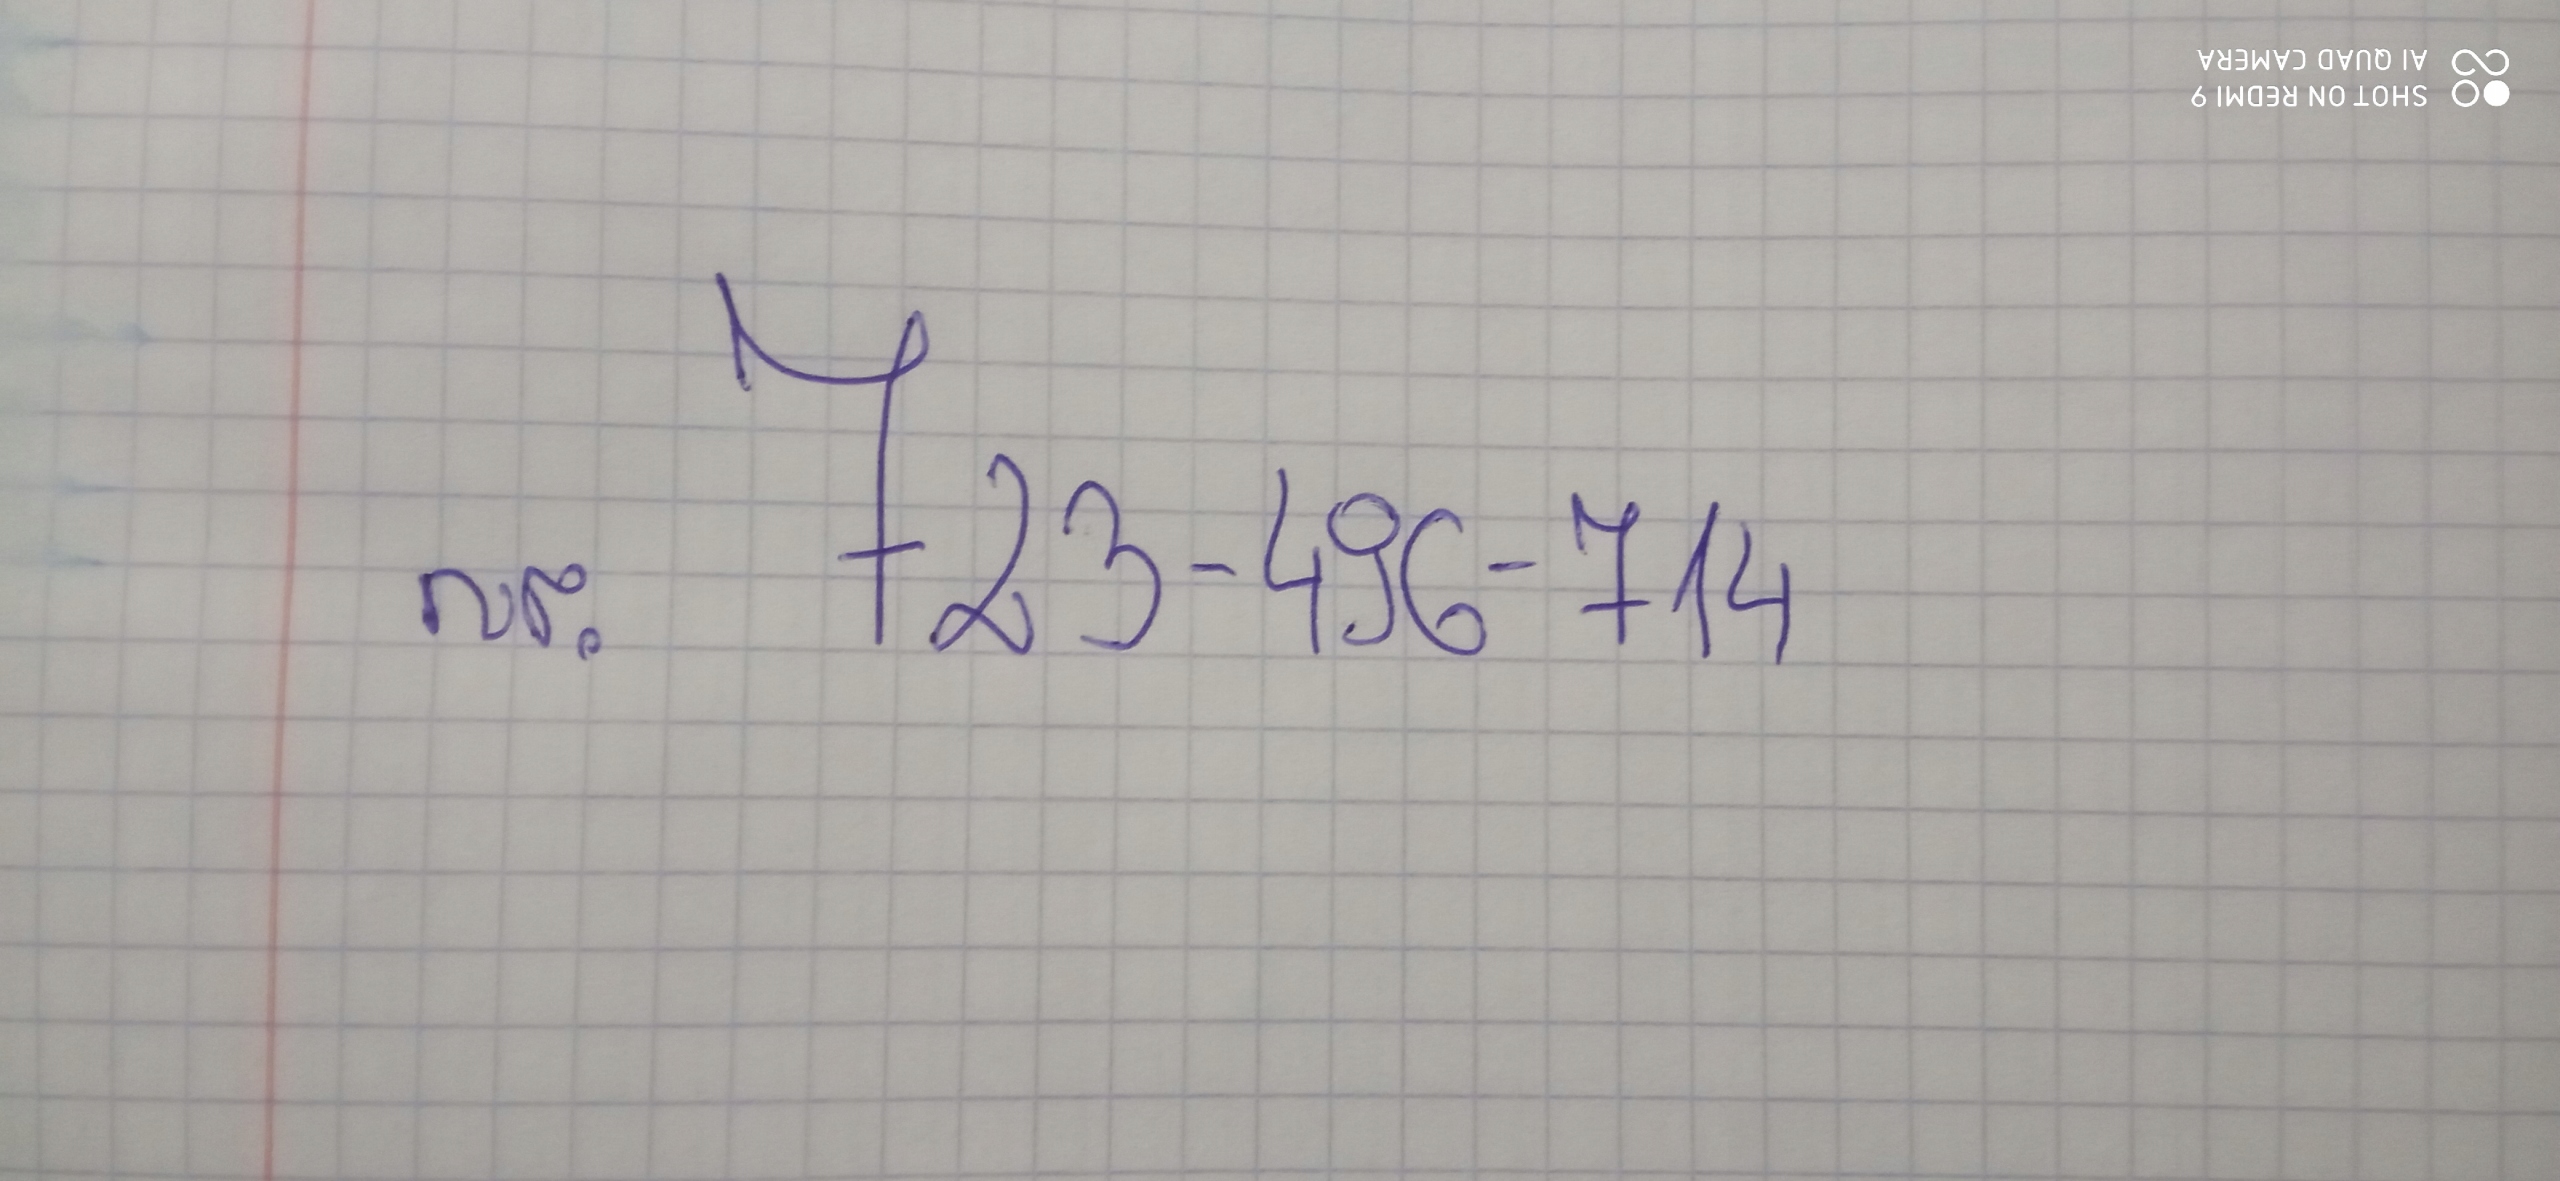 nr. 723-496-714
SHOT ON REDMI 9
AI QUAD CAMERA